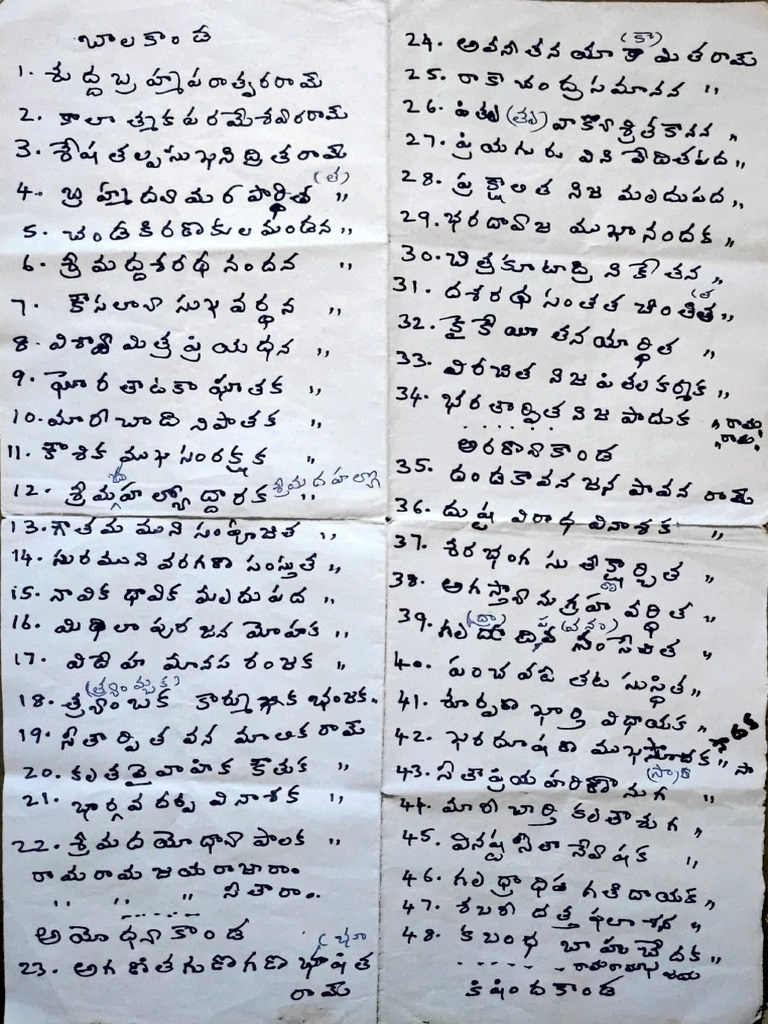 బాలకాండ
1. శుద్ధబ్రహ్మపరాత్పరరామ్
2. కాలాత్మకపరమేశ్వరరామ్
3. శేషతల్పసుఖనిద్రితరామ్
4. బ్రహ్మాద్యమరప్రార్థిత (త) "
5. చండకిరణకులమండన "
6. శ్రీమద్దశరథనందన "
7. కౌసల్యాసుఖవర్ధన "
8. విశ్వామిత్రప్రియధన "
9. ఘోరతాటకాఘాతక "
10. మారీచాది నిపాతక "
11. కౌశిక ముఖసంరక్షక "
12. శ్రీమద్గహల్యోద్దారక శ్రీమదహల్యో "
13. గౌతమముని సంపూజిత "
14. సురముని వరగణ సంస్తుత "
15. నావిక ధావిక మృదుపద "
16. మిథిలాపురజన మోహక "
17. విదేహ మానస రంజక "
18. త్ర్యంబక (త్ర్యంమ్బక) కార్ముఖ భంజక "
19. సీతార్పిత వన మాలిక రామ్
20. కృత వైవాహిక కౌతుక "
21. భార్గవ దర్ప వినాశక "
22. శ్రీమదయోధ్యాపాలక "
రామరామ జయరాజారాం
" " " సీతారాం.
అయోధ్యాకాండ
23. అగణితగుణగణభూషిత (భూ
రామ్
24. అవనీతనయాకామితరామ్ (కా)
25. రాకాచంద్రసమానన "
26. పితృ (తృ) వాక్యాశ్రితకానన "
27. ప్రియగుహ వినివేదితపద "
28. ప్రక్షాలిత నిజ మృదుపద "
29. భరద్వాజ ముఖానందక "
30. చిత్రకూటాద్రి నికేతన "
31. దశరథ సంతత చింతిత (త "
32. కైకేయీ తనయార్థిత "
33. విరచిత నిజ పితృకర్మక "
34. భరతార్పిత నిజ పాదుక " రామ
" రామ.
అరణ్యాకాండ
35. దండకావనజన పావన రామ్
36. దుష్ట విరాధ వినాశక "
37. శరభంగ సుతీక్ష్ణార్చిత "
38. అగస్త్యానుగ్రహ వర్ధిత "
39. గృధ్రాధిప సంసేవిత "
40. పంచవటీ తట సుస్థిత "
41. శూర్పణఖార్తి విధాయక "
42. ఖరదూషణ ముఖసూదక " సూ
43. సీతాప్రియ హరిణానుగ "
44. మారీచార్తి కృతాశుగ "
45. వినష్ట సీతాన్వేషక "
46. గృధ్రాధిప గతిదాయక "
47. శబరీ దత్త ఫలాశన "
48. కబంధ బాహుచ్ఛేదక "
రామరామ జయ
కిషిందకాండ